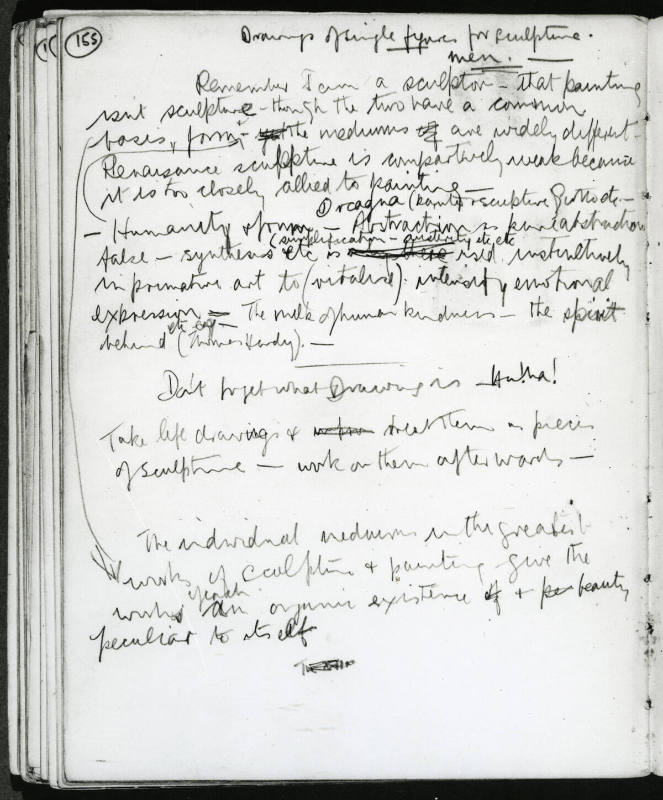 155
Drawings of single figures for sculpture.
men. —
Remember I am a sculptor - that painting
isnt sculpture - though the two have a common
bases, form, - the mediums are widely different -
Renaissance sculpture is compartively weak because
it is too closely allied to painting —
Orcagna (painter & sculpture &
- Humanity & form - Abstraction as pure abstraction
false - synthesis (simplification - austerity etc etc
etc is used instinctively
in primative art to (vitalise) intensify emotional
expression = The milk of human kindness - the spirit
behind (Thomas Hardy). —
Don't forget what Drawing is - Ha! ha!
Take life drawings & treat them as pieces
of sculpture — work on them afterwards —
The individual mediums in the greatest
works of sculpture & painting give the
works each an organic existence & beauty
peculiar to itself